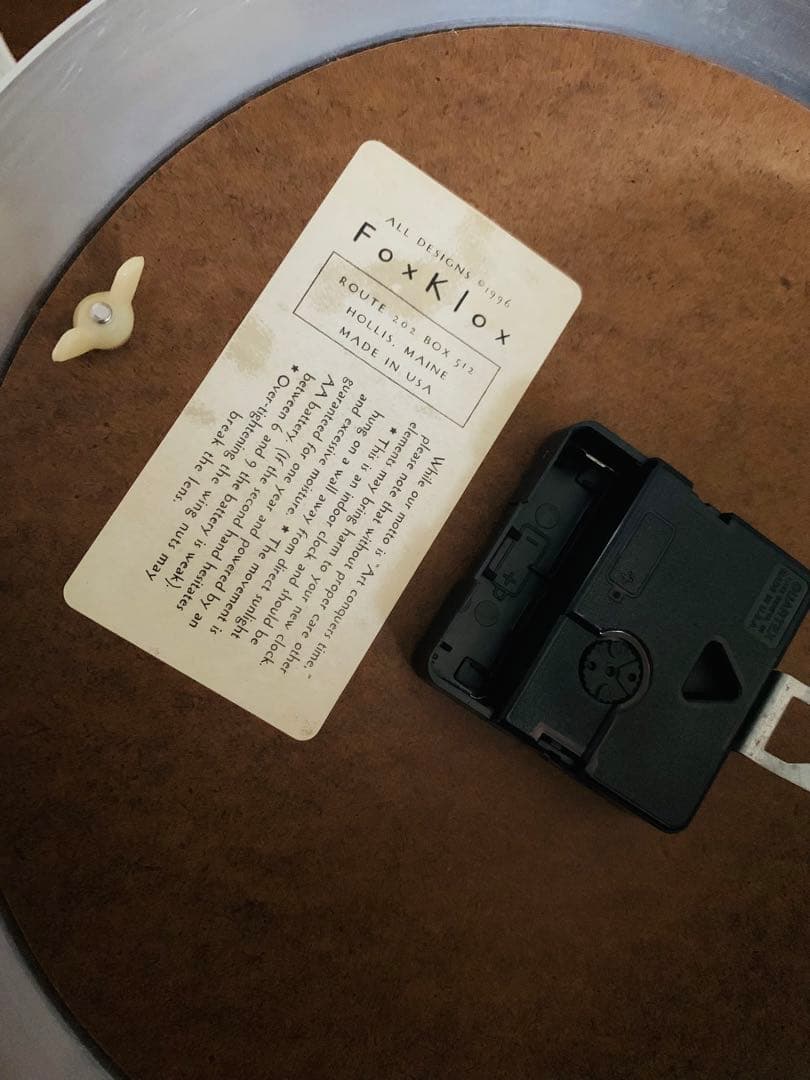 ALL DESIGNS ©1996
FoxKlox
ROUTE 202 BOX 512
HOLLIS, MAINE
MADE IN USA
While our motto is "Art conquers time,"
please note that without proper care other
elements may bring harm to your new clock.
★ This is an indoor clock and should be
hung on a wall away from direct sunlight
and excessive moisture. ★ The movement is
guaranteed for one year and powered by an
AA battery. (If the second hand hesitates
between 6 and 9 the battery is weak).
★ Over-tightening the wing nuts may
break the lens
QUARTEX
MADE IN U.S.A.